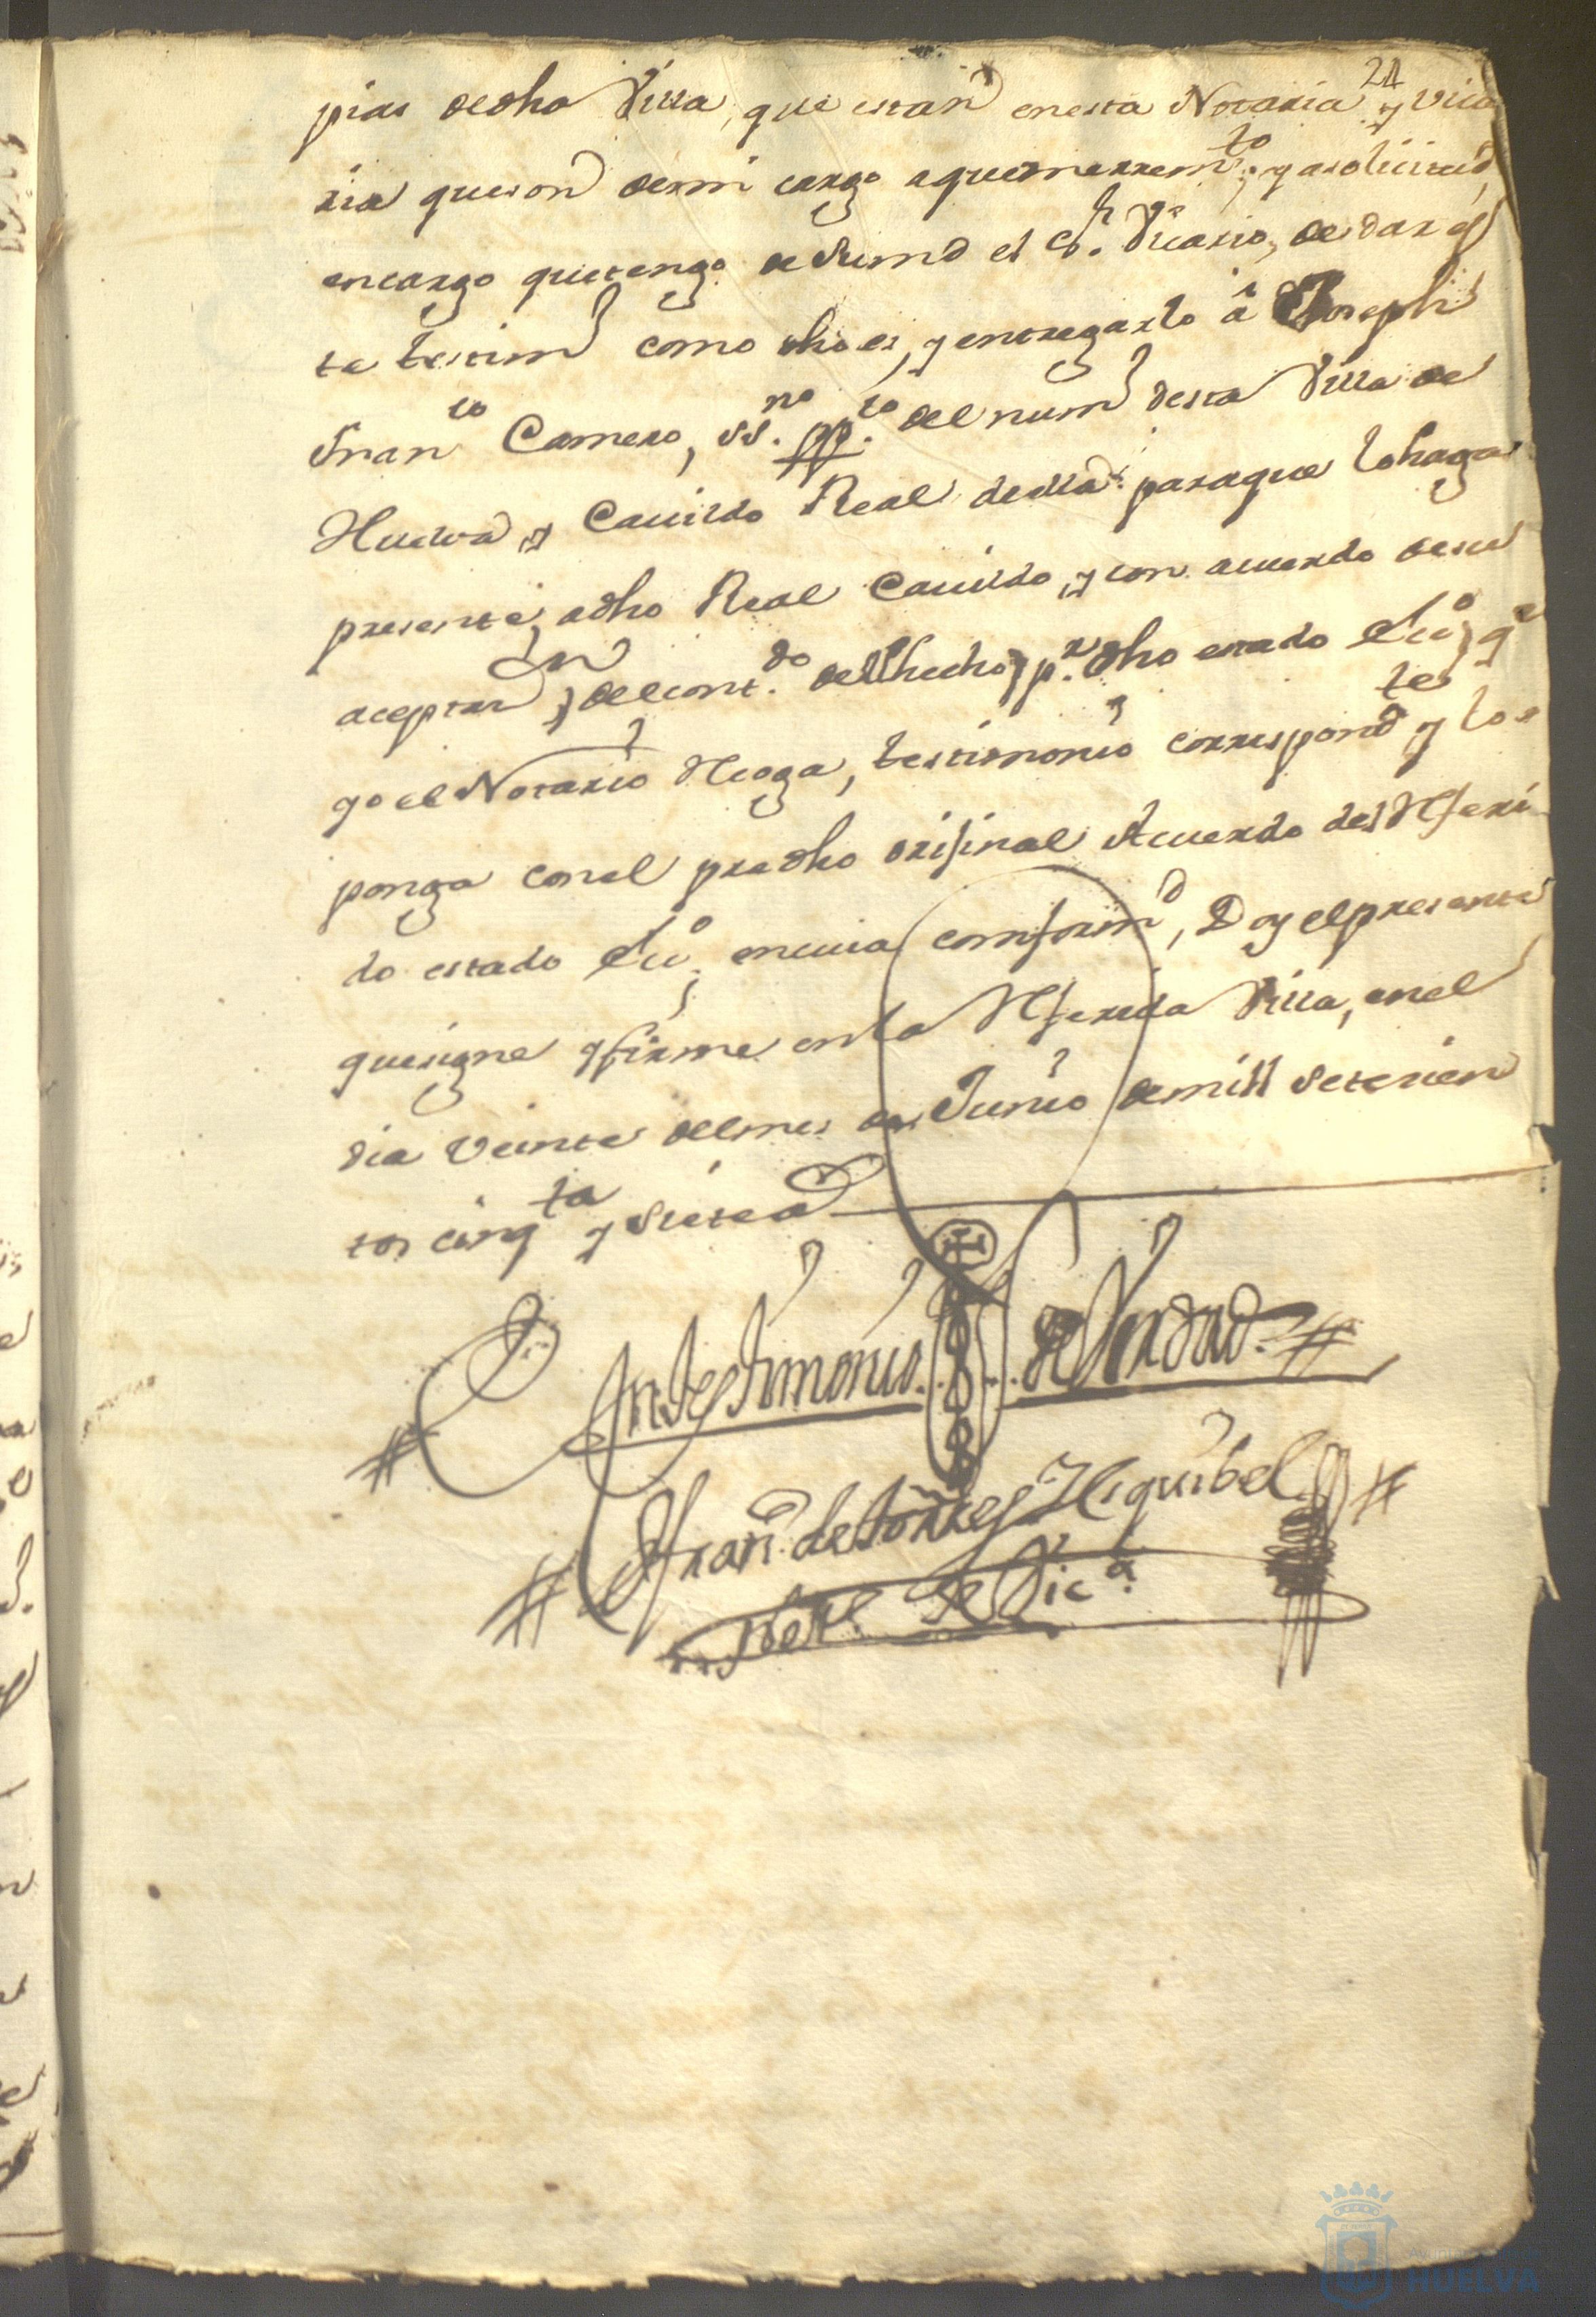 21
pias dedha Villa, que estan enesta Notaria y Vica
ria queson demi cargo aquemerrem.to; y asolicitud,
encargo quetengo desumd el S.r Vicario, de dar es
te testim como dho es, y entregarlo â Joseph
Fran.co Camero, ss.no pp.co del num desta Villa de
Huelva y Cavildo Real della paraque lohaga
presente, adho Real Cavildo, y con acuerdo desu
aceptan, delcont.do del hecho, p.r dho estado Ecc.o, q.e
yo el Notario Haga, testimonio correspond.te y lo
ponga conel predho orijinal Acuerdo del Rferi
do estado Ecc.o; encuia conform.d, Doy elpresente
quesigne yfirme enla Rferida Villa, enel
dia Veinte delmes de Junio demill Setecien
tos cinq.ta y Siete a
En testimonio de Verdad
Fran.co de Torres Esquibel
Not.o de Vic.a
HUELVA